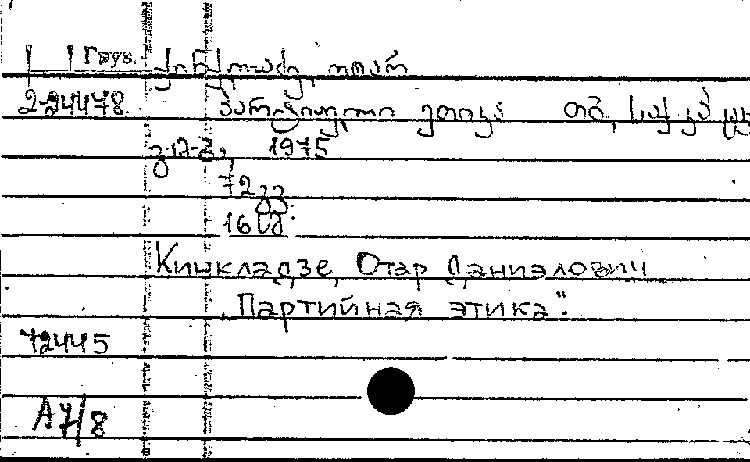 Груз. ქინქლაძე, ოთარ
2-24478 პარტიული ეთიკა თბ., საქ. კპ ცკ
გ-ბა, 1975
72 გვ.
16 სმ.
Кинкладзе, Отар Даниэлович
"Партийная этика".
72445
А7/8